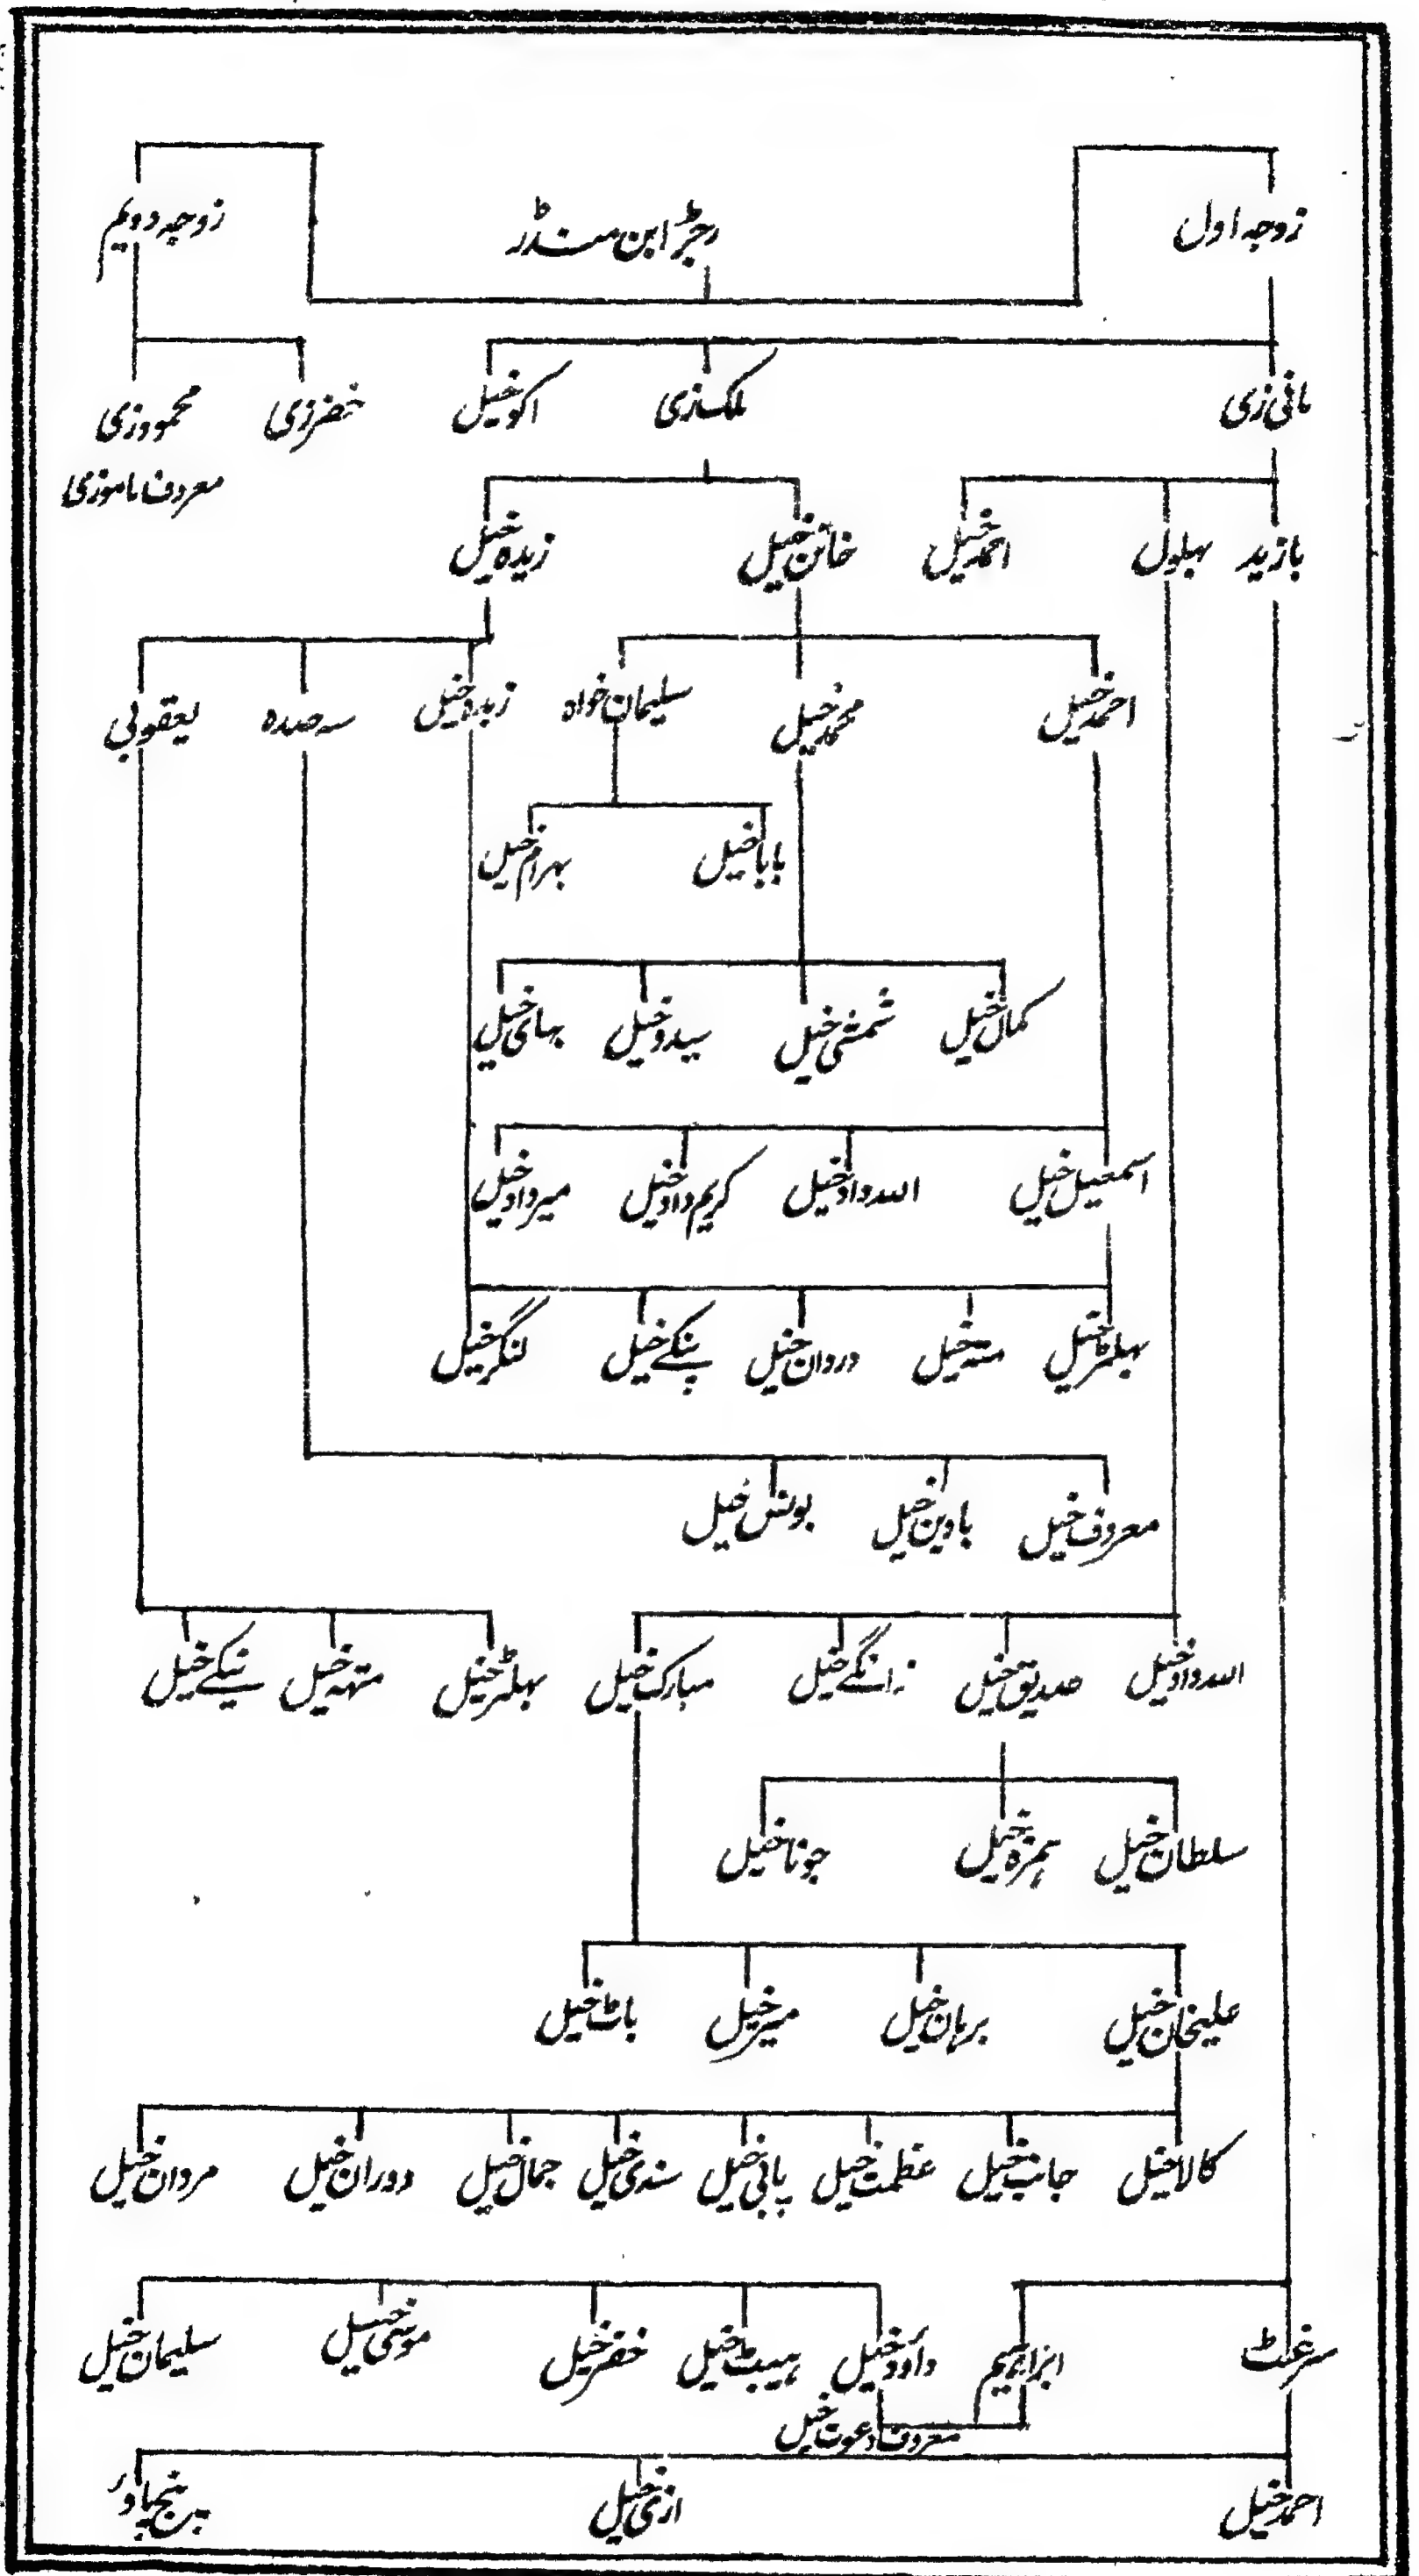 زوجہ اول رجڑ ابن منڈر زوجہ دویم
مانی زی ملک زی اکوخیل خضرزی محمودزی
معروف ماموزی
بازید بہلول احمدخیل خائن خیل زیدہ خیل
احمدخیل محمدخیل سلیمان خواہ زیدہ خیل سہ صدہ یعقوبی
باباخیل بہرام خیل
کمال خیل شمشی خیل سیدوخیل بہای خیل
اسمعیل خیل اللہ دادخیل کریم دادخیل میردادخیل
بہلمڑخیل متہ خیل دردان خیل پنکے خیل لنگرخیل
معروف خیل بادین خیل یونس خیل
اللہ دادخیل صدیق خیل زانگے خیل مبارک خیل بہلمڑخیل متہہ خیل نیکے خیل
سلطان خیل ہمزہ خیل جوناخیل
علیخان خیل برہان خیل میرخیل باٹ خیل
کالاخیل جانب خیل عظمت خیل پائی خیل سندی خیل جمال خیل دوران خیل مردان خیل
سرغٹ ابراہیم داؤدخیل ہیبت خیل خضرخیل موسیٰ خیل سلیمان خیل
معروف دعوت خیل
احمدخیل ازی خیل پنج پاؤ